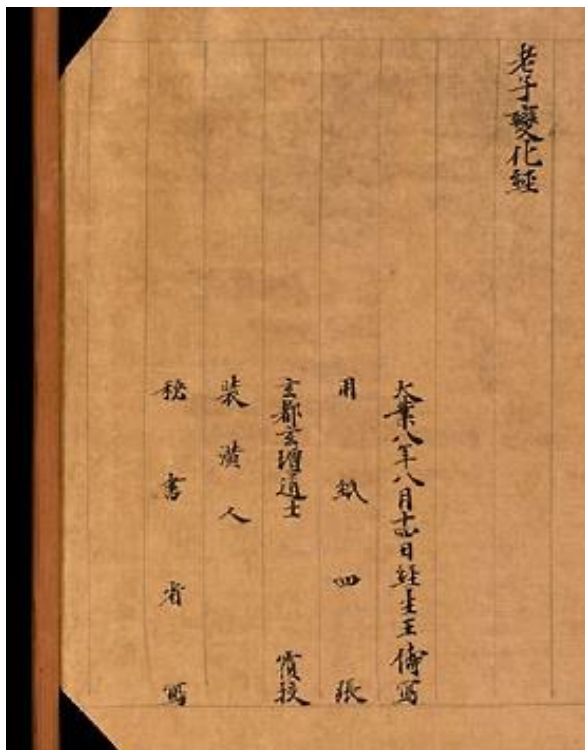 老子變化經
大業八年八月十四日經生王儔寫
用紙四張
玄都玄壇道士 覆校
裝潢人
秘書省寫